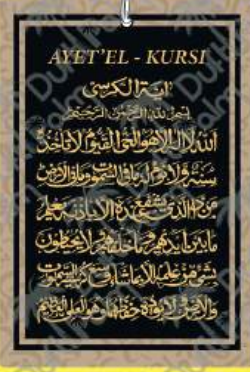 AYET'EL - KURSI
آية الكرسي
بسم الله الرحمن الرحيم
الله لا إله إلا هو الحي القيوم لا تأخذه
سنة ولا نوم له ما في السموات وما في الأرض
من ذا الذي يشفع عنده إلا بإذنه يعلم
ما بين أيديهم وما خلفهم ولا يحيطون
بشيء من علمه إلا بما شاء وسع كرسيه السموات
والأرض ولا يؤده حفظهما وهو العلي العظيم